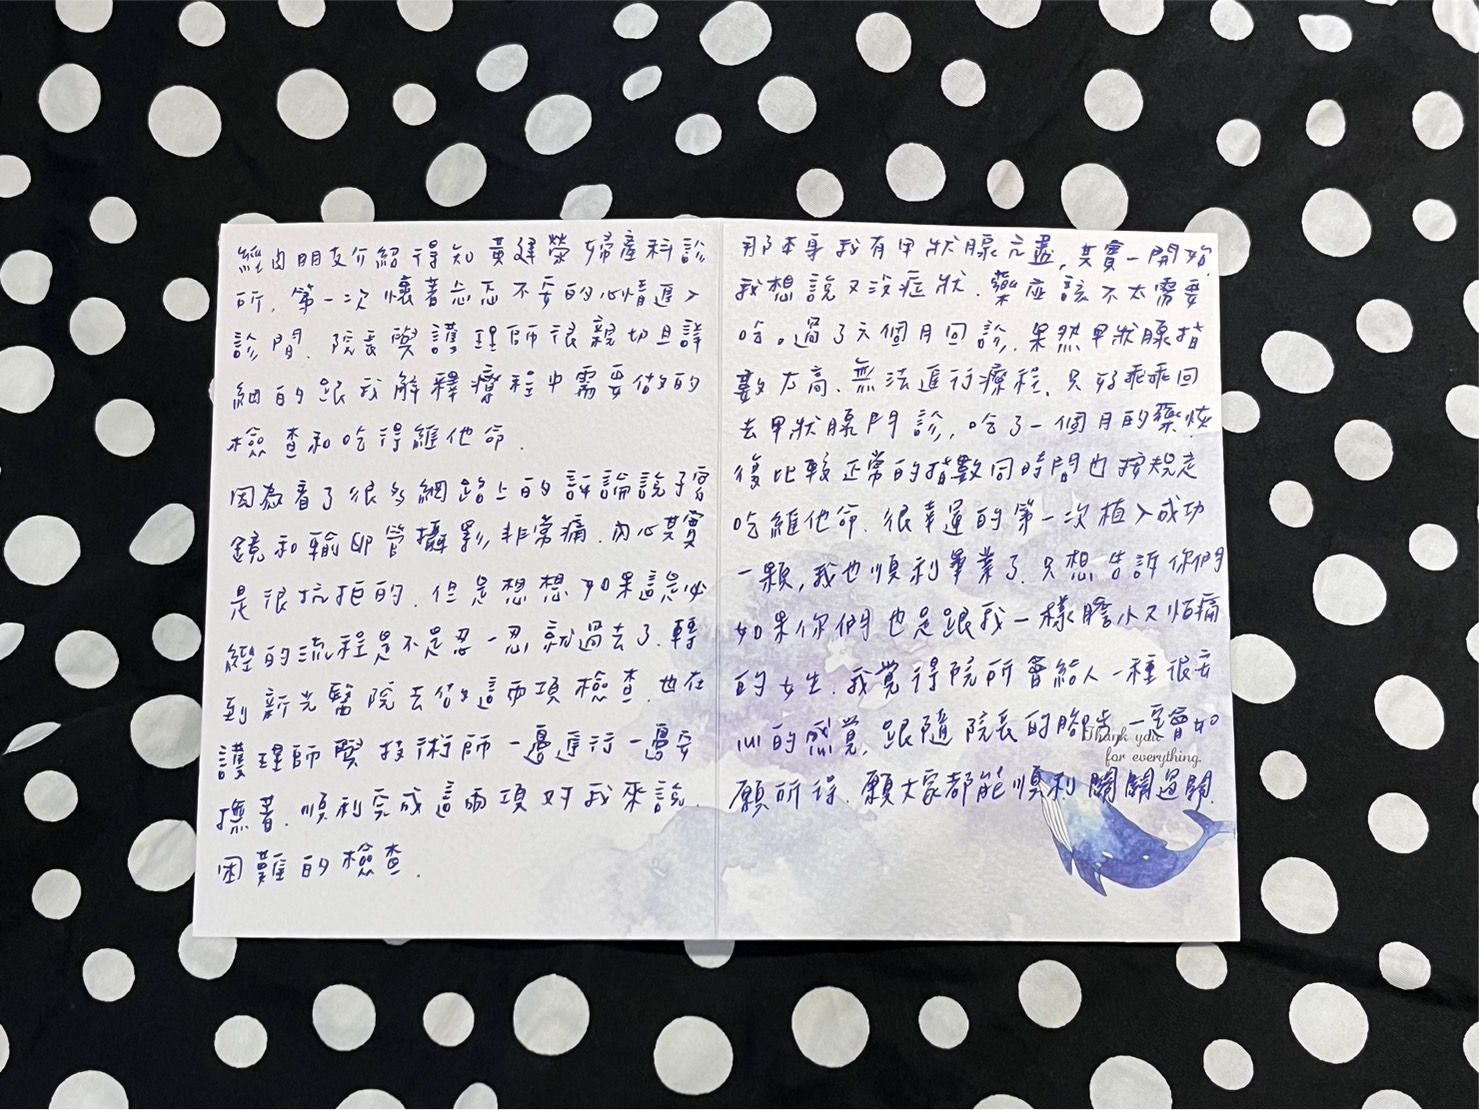 經由朋友介紹得知黃建榮婦產科診
所,第一次懷著忐忑不安的心情進入
診間.院長與護理師很親切且詳
細的跟我解釋療程中需要做的
檢查和吃得維他命.
因為看了很多網路上的評論說子宮
鏡和輸卵管攝影非常痛.內心其實
是很抗拒的.但是想想如果這是必
經的流程是不是忍一忍就過去了.轉
到新光醫院去做這兩項檢查.也在
護理師與技術師一邊進行一邊安
撫著.順利完成這兩項對我來說
困難的檢查.
那本身我有甲狀腺亢盡,其實一開始
我想說又沒症狀.藥應該不太需要
吃。過了六個月回診.果然甲狀腺指
數太高.無法進行療程.只好乖乖回
去甲狀腺門診,吃了一個月的藥恢
復比較正常的指數同時間也按規定
吃維他命.很幸運的第一次植入成功
一顆,我也順利畢業了.只想告訴你們
如果你們也是跟我一樣膽小又怕痛
的女生.我覺得院所會給人一種很安
心的感覺.跟隨院長的腳步一定會如
願所得.願大家都能順利關關過關.
Thank you
for everything.